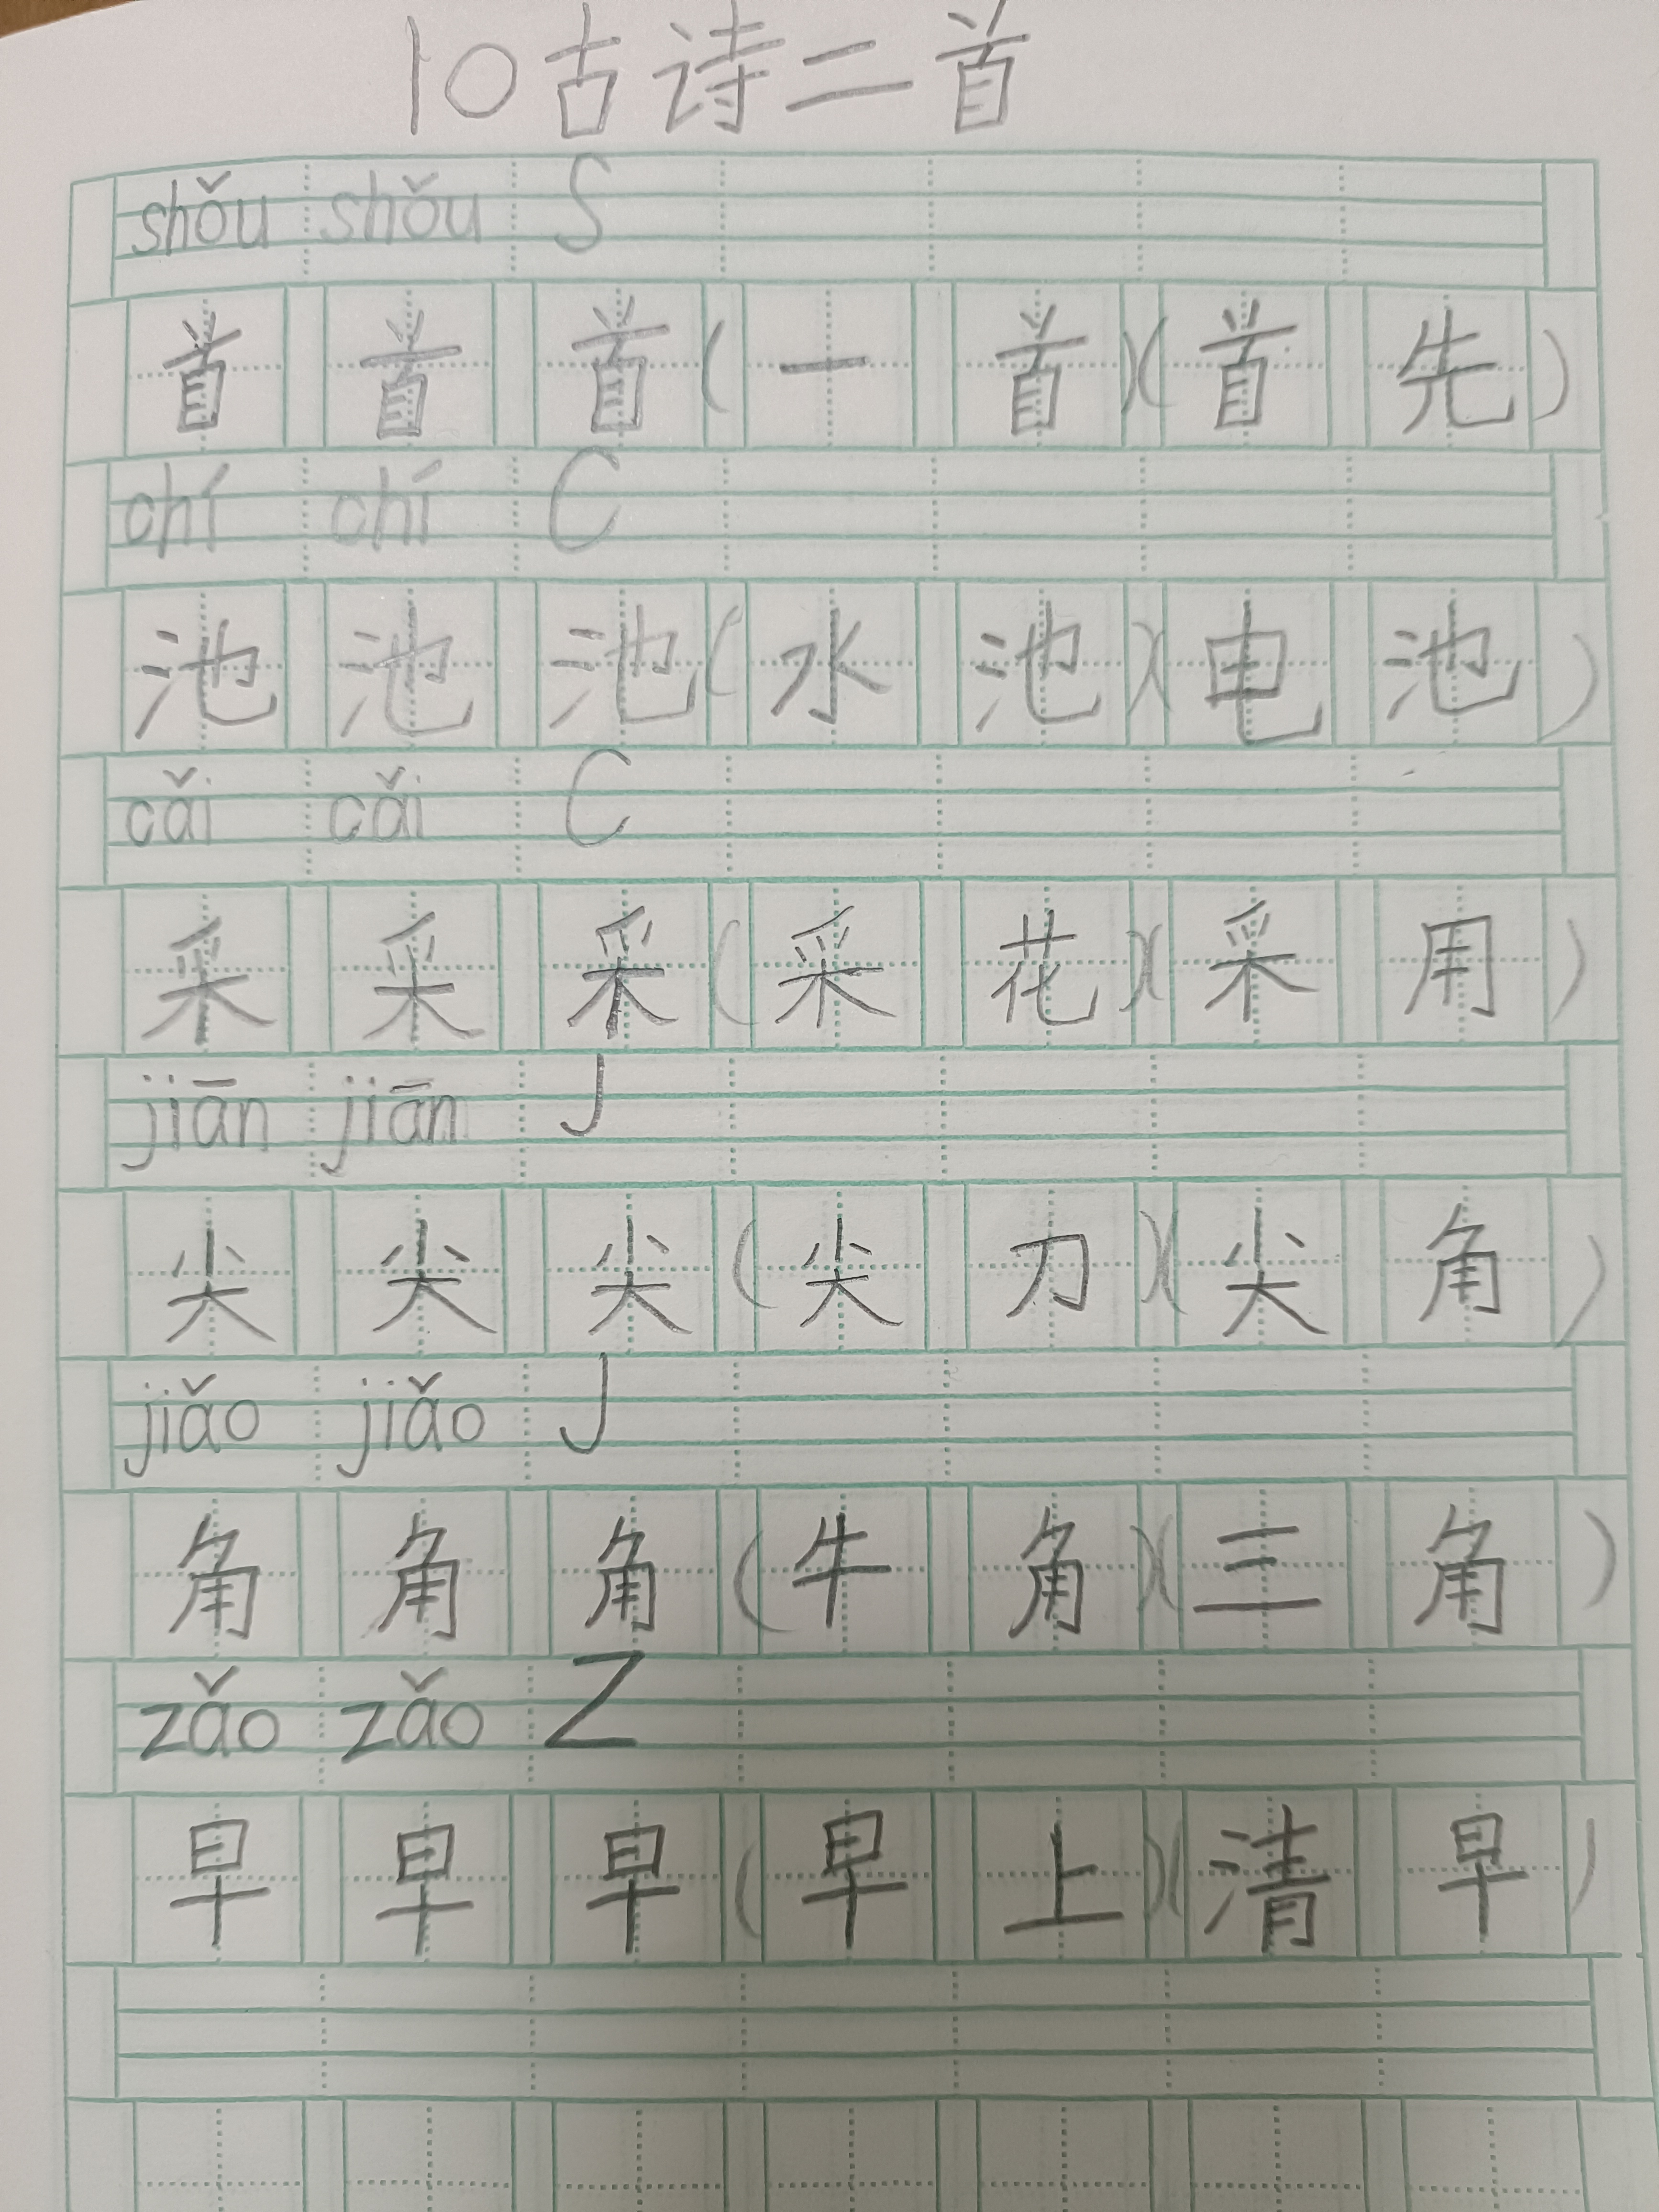 10古诗二首
shǒu shǒu S
首 首 首 ( 一 首 ) ( 首 先 )
chí chí C
池 池 池 ( 水 池 ) ( 电 池 )
cǎi cǎi C
采 采 采 ( 采 花 ) ( 采 用 )
jiān jiān J
尖 尖 尖 ( 尖 刀 ) ( 尖 角 )
jiǎo jiǎo J
角 角 角 ( 牛 角 ) ( 三 角 )
zǎo zǎo Z
早 早 早 ( 早 上 ) ( 清 早 )